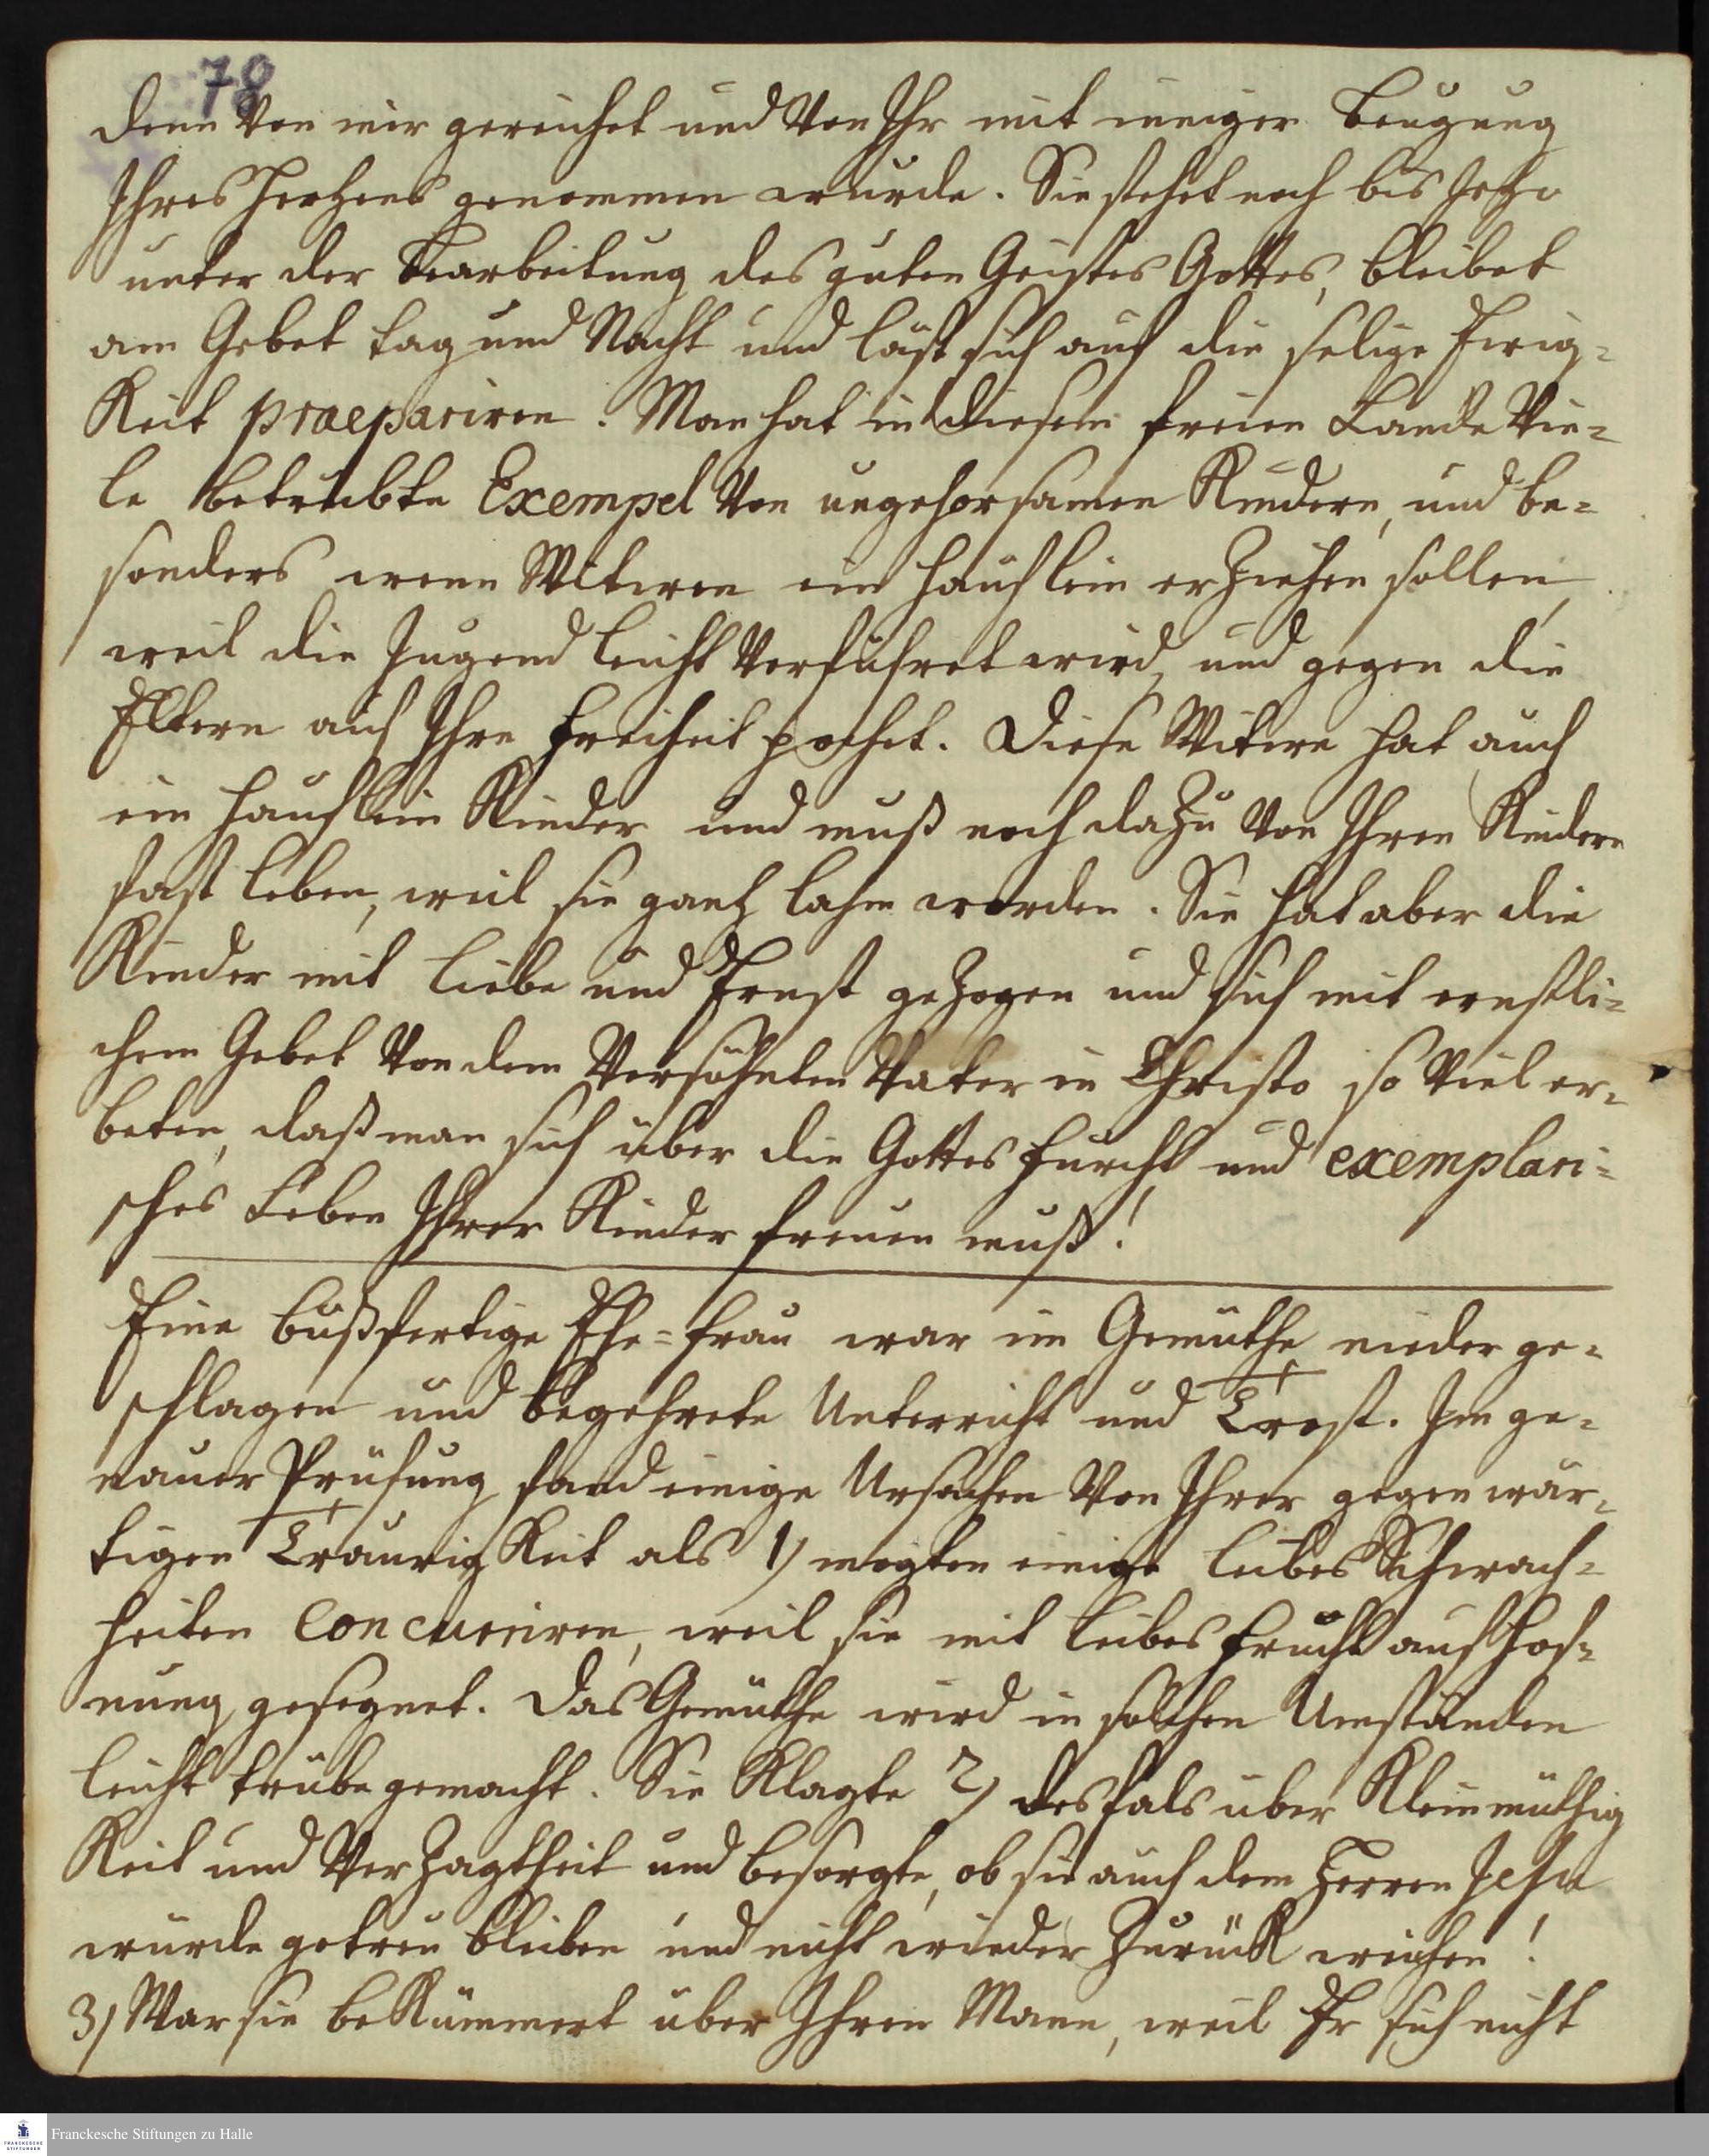 78
denn von mir gereichet und von Ihr mit inniger Beugung
Ihres Hertzens genommen wurde. Sie stehet noch bis Jetzo
unter der Bearbeitung des guten Geistes Gottes, bleibet
am Gebet tag und Nacht und läst sich auf die selige Ewig=
keit praepariren. Man hat in diesem freien Lande Vie=
le betrübte Exempel von ungehorsamen Kindern, und be=
sonders wenn Witwen ein Häuflein erziehen sollen,
weil die Jugend leicht verführet wird, und gegen die
Eltern auf Ihre Freiheit pochet. Diese Witwe hat auch
ein Häuflein Kinder und muß noch dazu von Ihren Kindern
fast leben, weil sie gantz lahm worden. Sie hat aber die
Kinder mit Liebe und Ernst gezogen und sich mit ernstli=
chem Gebet von dem Versöhnten Vater in Christo so viel er=
beten, daß man sich über die Gottesfurcht und exemplari=
sches Leben Ihrer Kinder freuen muß!
Eine bußfertige Ehe=frau war im Gemüthe nieder ge=
schlagen und begehrete Unterricht und Trost. Im ge=
nauer Prüfung fand einige Ursachen von Ihrer gegenwär=
tigen Traurigkeit als 1) mogten einige Leibes Schwach=
heiten concurriren, weil sie mit Leibes Frucht auf Hof=
nung gesegnet. Das Gemüthe wird in solchen Umständen
leicht trübe gemacht. Sie klagte 2) desfals über Kleinmüthig
keit und Verzagtheit und besorgte, ob sie auch dem Herren Jesu
würde getreu bleiben und nicht wieder zurück weichen!
3) War sie bekümmert über Ihren Mann, weil Er sich nicht
Franckesche Stiftungen zu Halle